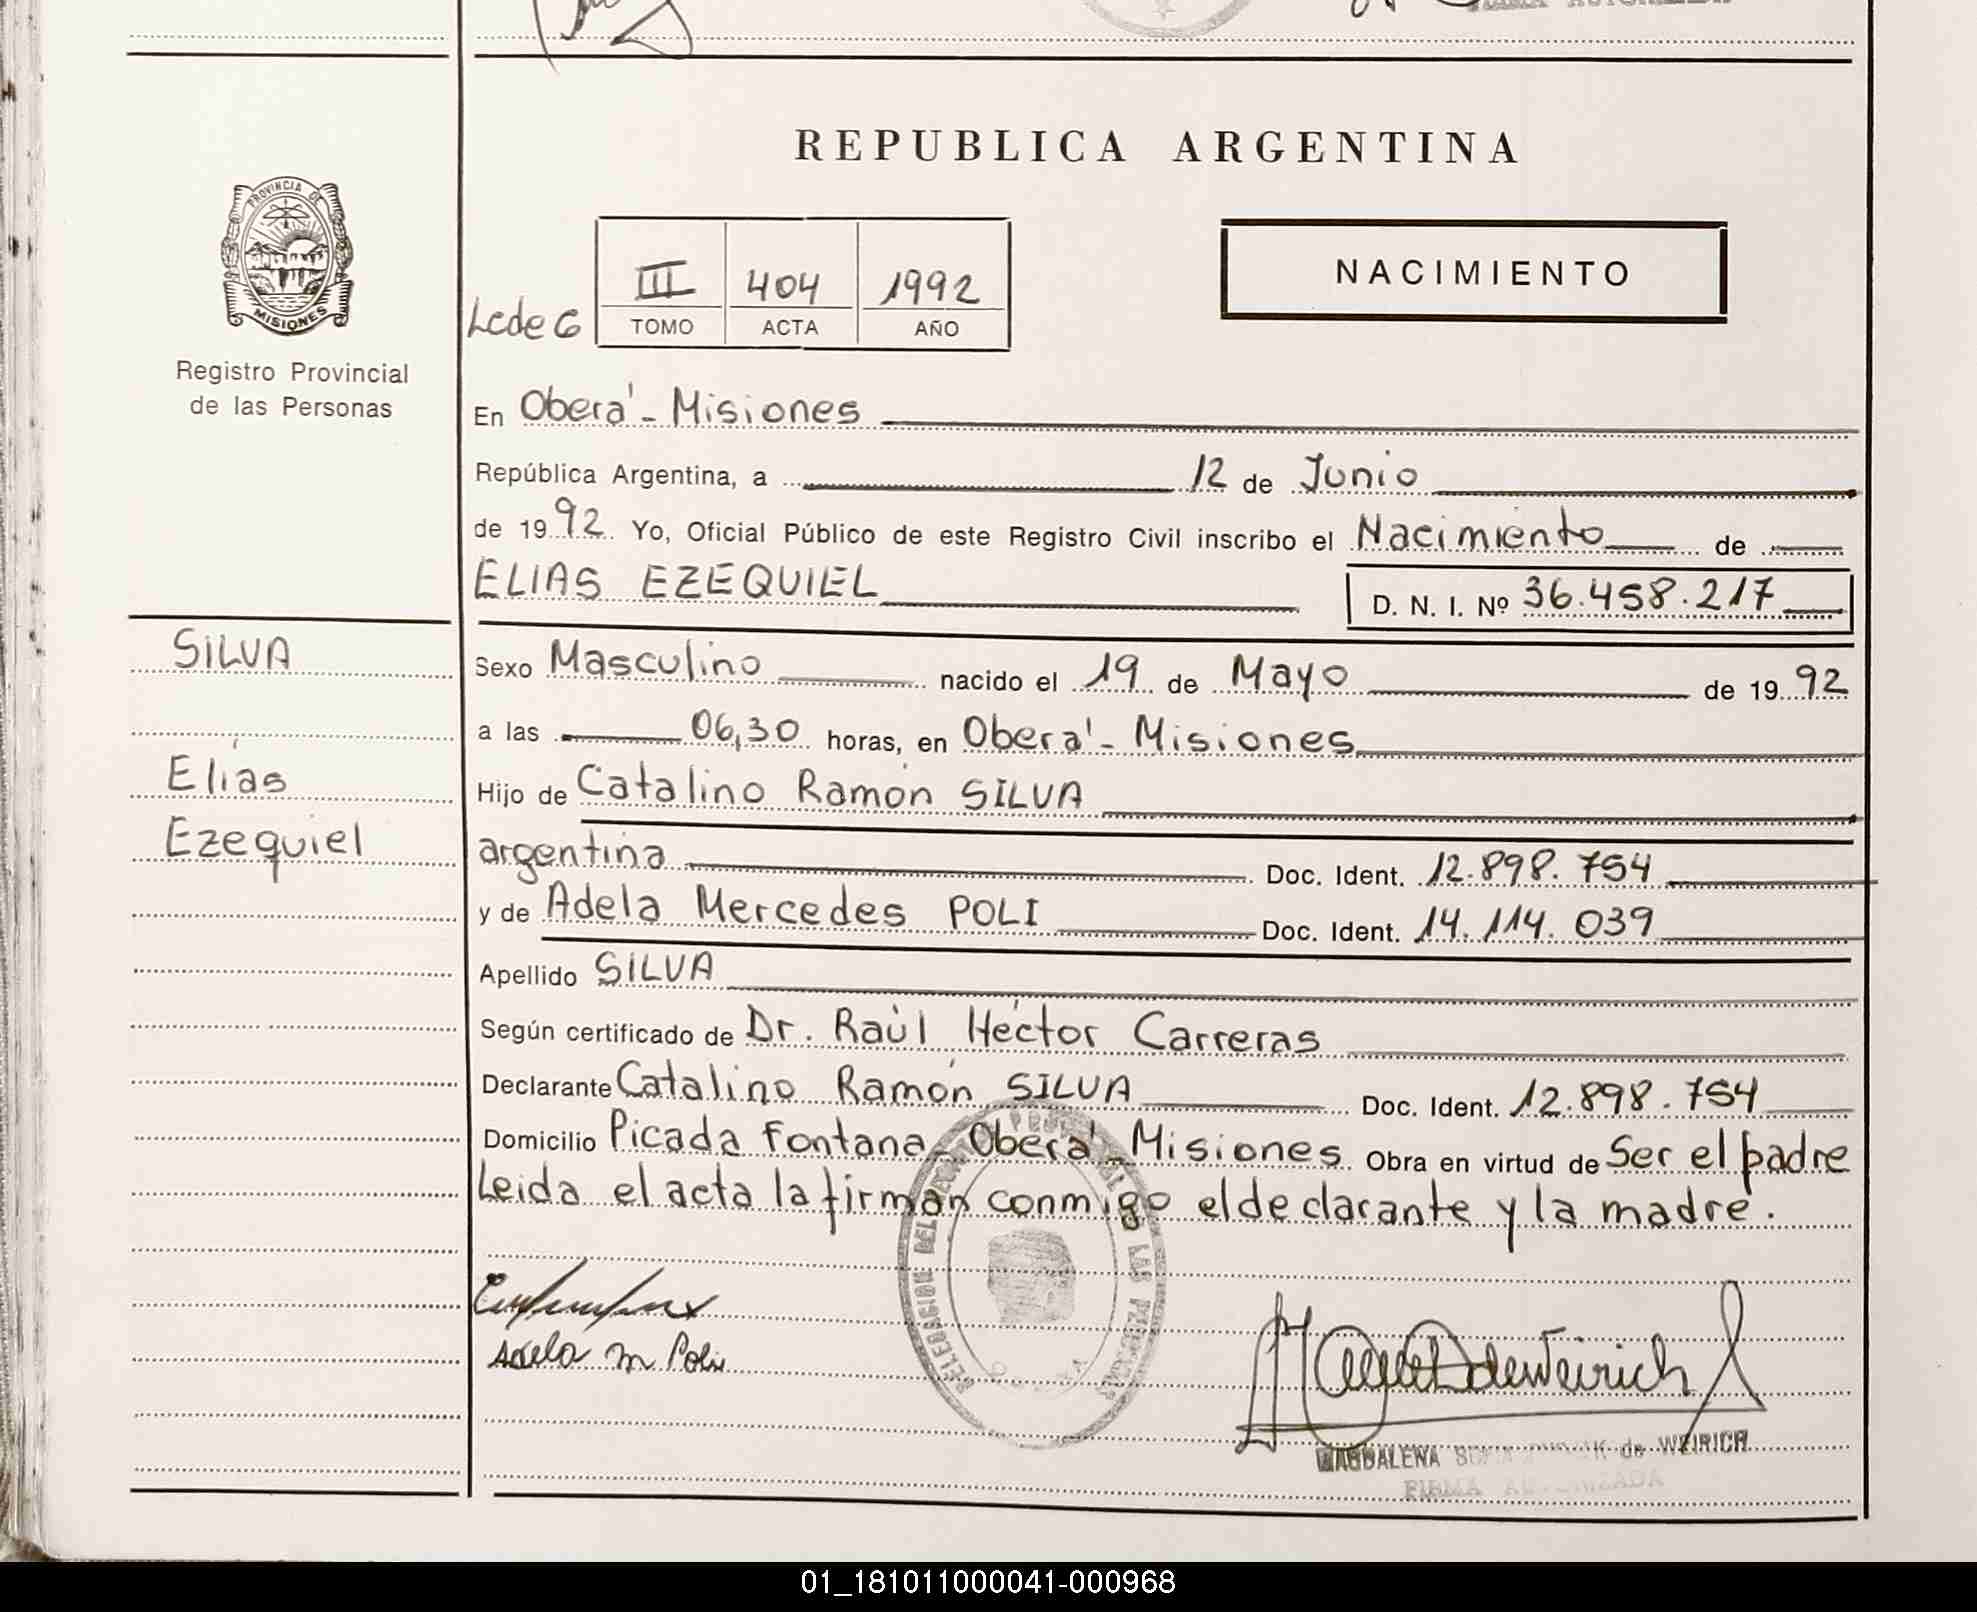 REPUBLICA ARGENTINA
PROVINCIA DE
MISIONES
Registro Provincial
de las Personas
NACIMIENTO
Lcde 6
III 404 1992
TOMO ACTA AÑO
En Oberá - Misiones
República Argentina, a 12 de Junio
de 1992 Yo, Oficial Público de este Registro Civil inscribo el Nacimiento de
ELIAS EZEQUIEL D. N. I. Nº 36.458.217
SILVA
Elías
Ezequiel
Sexo Masculino nacido el 19 de Mayo de 1992
a las 06,30 horas, en Oberá - Misiones
Hijo de Catalino Ramón SILVA
argentina Doc. Ident. 12.898.754
y de Adela Mercedes POLI Doc. Ident. 14.114.039
Apellido SILVA
Según certificado de Dr. Raúl Héctor Carreras
Declarante Catalino Ramón SILVA Doc. Ident. 12.898.754
Domicilio Picada Fontana - Oberá - Misiones Obra en virtud de Ser el padre
Leida el acta la firman conmigo el declarante y la madre.
Adela M. Poli
MAGDALENA de WEIRICH
FIRMA AUTORIZADA
01_181011000041-000968